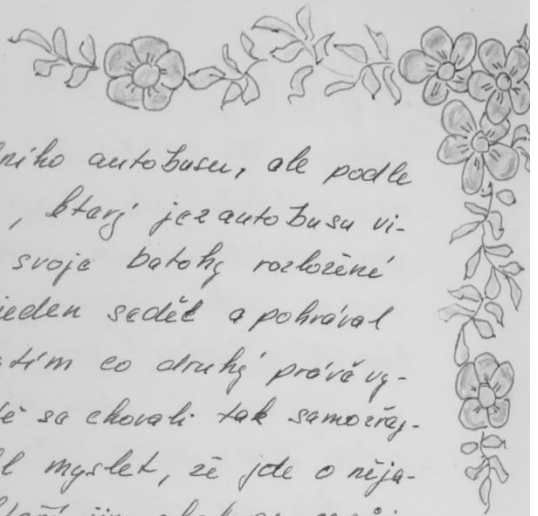 ního autobusu, ale podle
, který je z autobusu vi-
svoje batohy rozložené
jeden seděl a pohrával
tím co druhý právě vy-
se chovali tak samozřej-
myslet, že jde o něja-